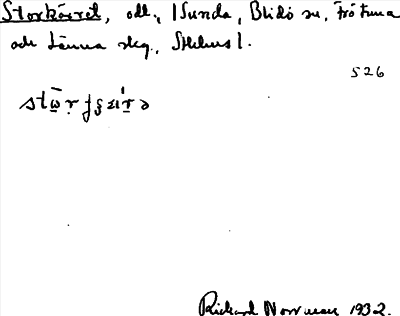 Storkärret, odl., i Sunda, Blidö sn, Frötuna
och Länna skg., Sthlms l.
526
Rickard Norrman 1932.